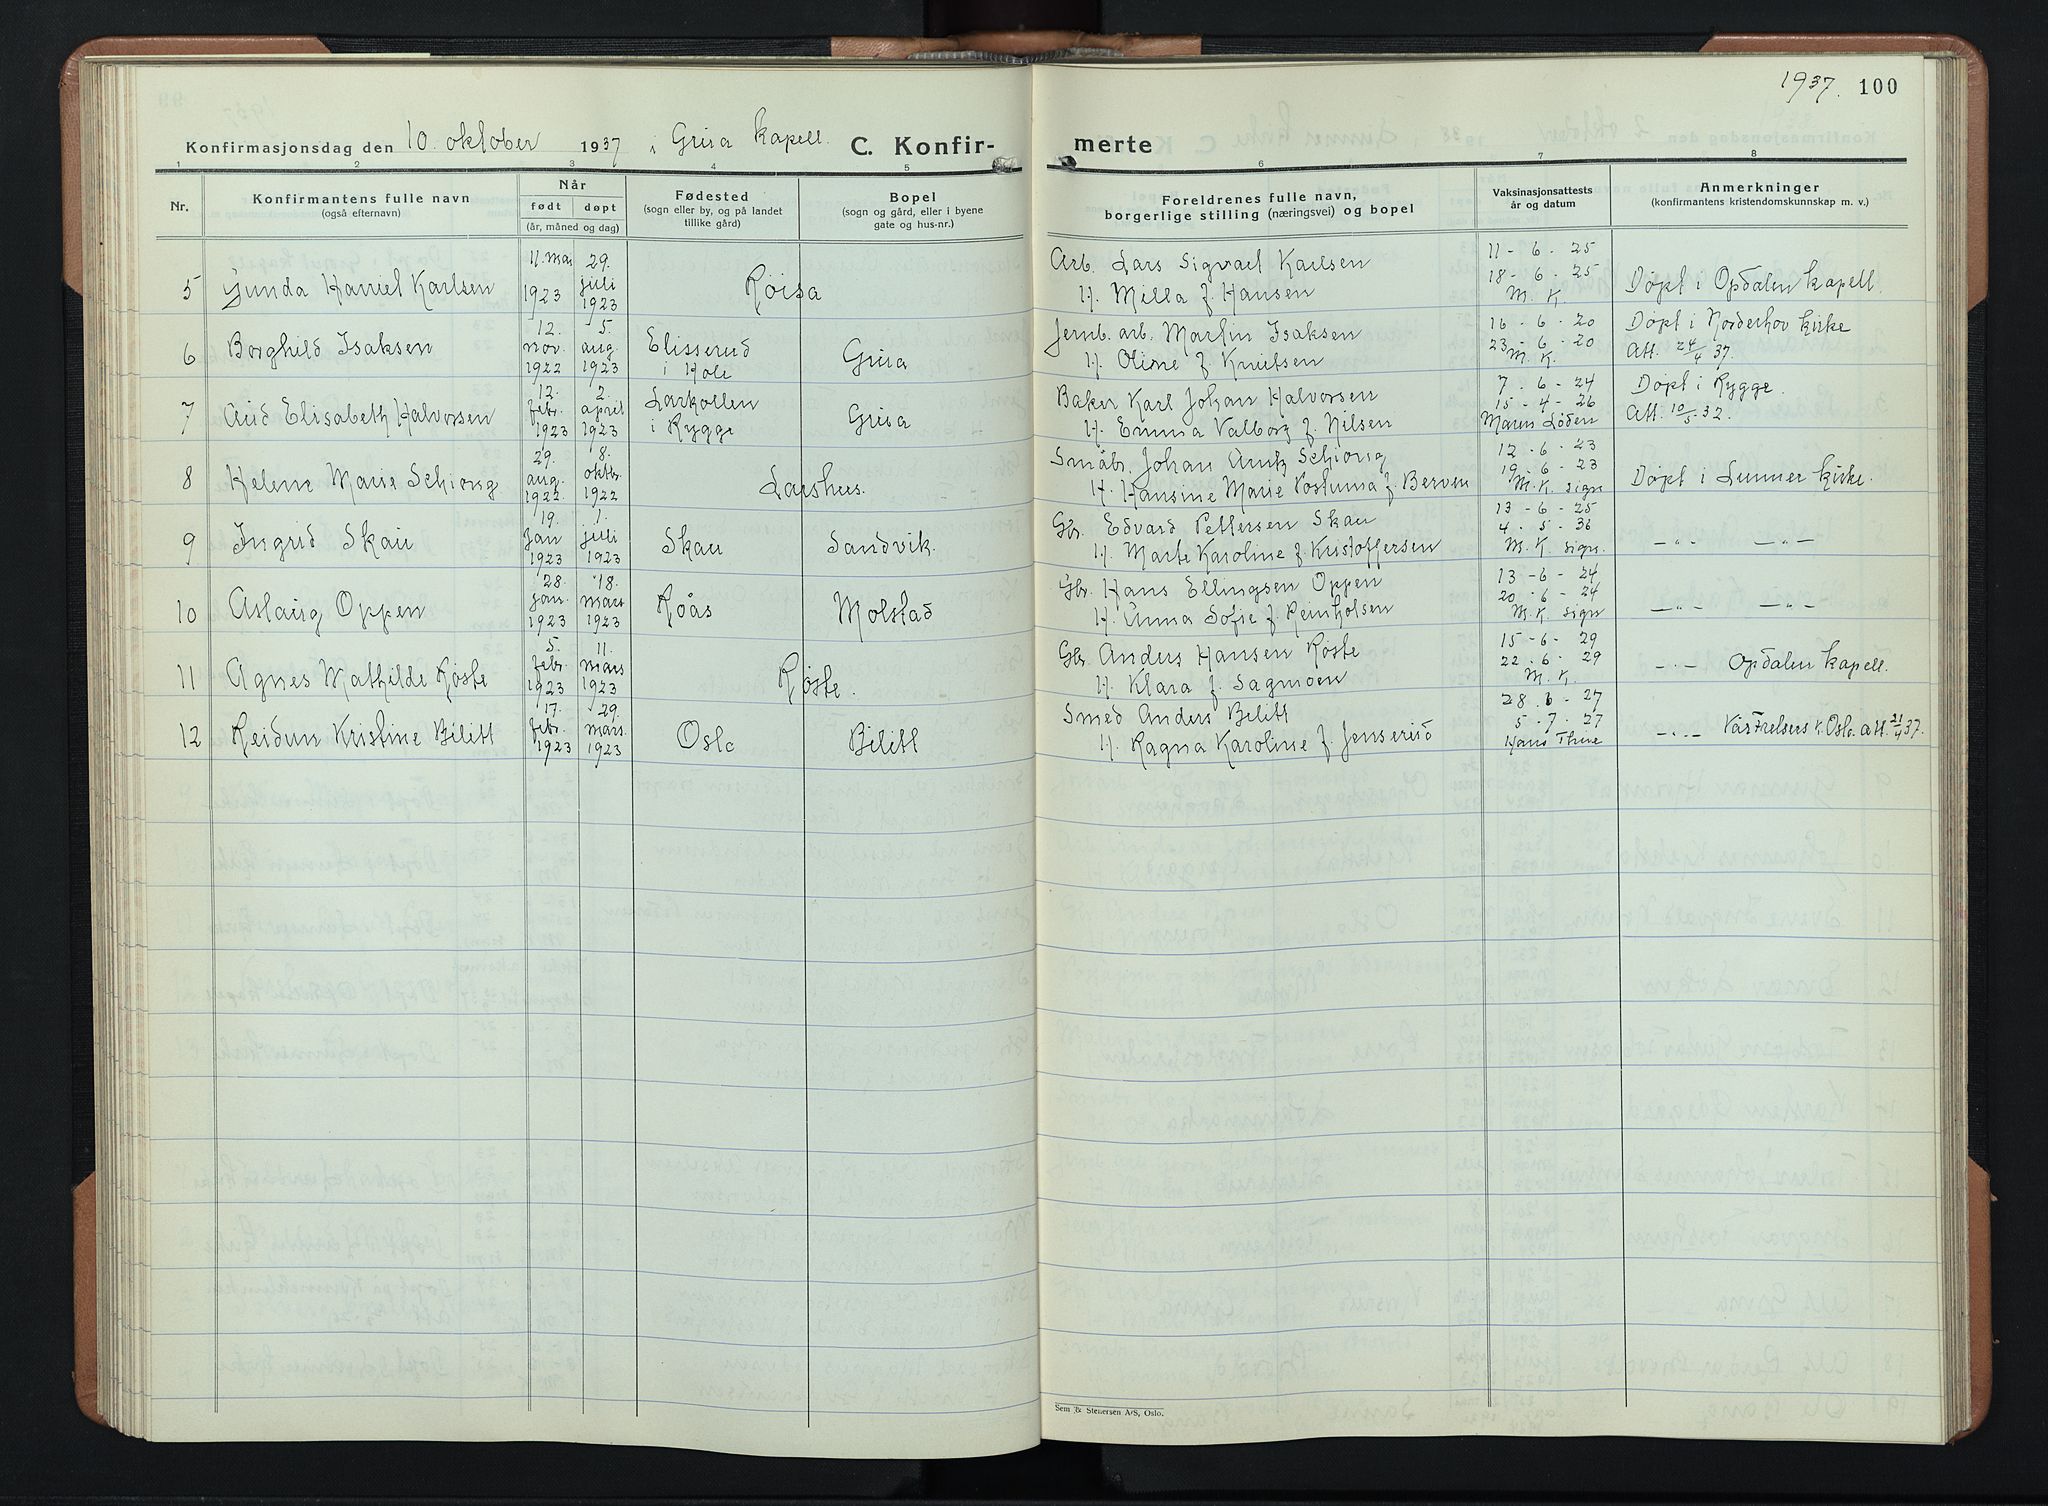 1937. 100
Konfirmasjonsdag den 10. oktober 1937 i Grua kapell. C. Konfir-
merte
1 2 3 4 5 6 7 8
Nr.
Konfirmantens fulle navn
(også efternavn)
Når
født døpt
(år, måned og dag)
Fødested
(sogn eller by, og på landet
tillike gård)
Bopel
(sogn og gård, eller i byene
gate og hus-nr.)
Foreldrenes fulle navn,
borgerlige stilling (næringsvei) og bopel
Vaksinasjonsattests
år og datum
Anmerkninger
(konfirmantens kristendomskunnskap m. v.)
11. mas 29. Arb. Lars Sigvart Karlsen 11 - 6 - 25
5 Gunda Harriet Karlsen juli Roisa 18 - 6 - 25 Døpt i Opdalen kapell.
1923 1923 H. Milla f. Hansen M. K.
12. 5. Jernb. arb. Martin Isaksen 16 - 6 - 20 Døpt i Norderhov kirke
6 Borghild Isaksen nov. aug. Elisserud Grua 23 - 6 - 20 Att. 24/4 37.
1922 1923 i Hole H. Oline f. Knutsen M. K.
12. 2. Larkollen Baker Karl Johan Halvorsen 7. 6 - 24 Døpt i Rygge.
7 Aud Elisabeth Halvorsen febr. april Grua 15 - 4 - 26 Att. 10/5 - 32.
1923 1923 i Rygge H. Emma Valborg f. Nilsen
29. 8. Småbr. Johan Arntz Schiong 12 - 6 - 23
8 Helene Marie Schiong aug. oktbr. Larshus. 19 - 6 - 23 Døpt i Lunner kirke.
1922 1922 H. Hansine Marie Postuma f. Berven M. K. sign
19. 1. Gbr. Edvard Pettersen Skau 13 - 6 - 25
9 Ingrid Skau jan juli Skau Sandvik. 4 - 5 - 36 — „ — — „ —
1923 1923 H. Marte Karoline f. Kristoffersen M. K. sign.
28. 18. Gbr. Hans Ellingsen Oppen 13 - 6 - 24
10 Aslaug Oppen jan. mars Røås Molstad 20 - 6 - 24 — „ — — „ —
1923 1923 H. Anna Sofie f. Reinholsen M. K. sign
5. 11. Gbr. Anders Hansen Røste 15 - 6 - 29
11 Agnes Mathilde Røste febr. mars Røste. 22 - 6 - 29 — „ — Opdalen kapell.
1923 1923 H. Klara f. Sagmoen M. K.
17. 29. Smed Anders Bilitt 28. 6 - 27
12 Reidun Kristine Bilitt febr. mars. Oslo Bilitt 5 - 7 - 27 — „ — Vår Frelsers k. Oslo. att. 21/4 37.
1923 1923 H. Ragna Karoline f. Jenserud
Sem & Stenersen A/S, Oslo.